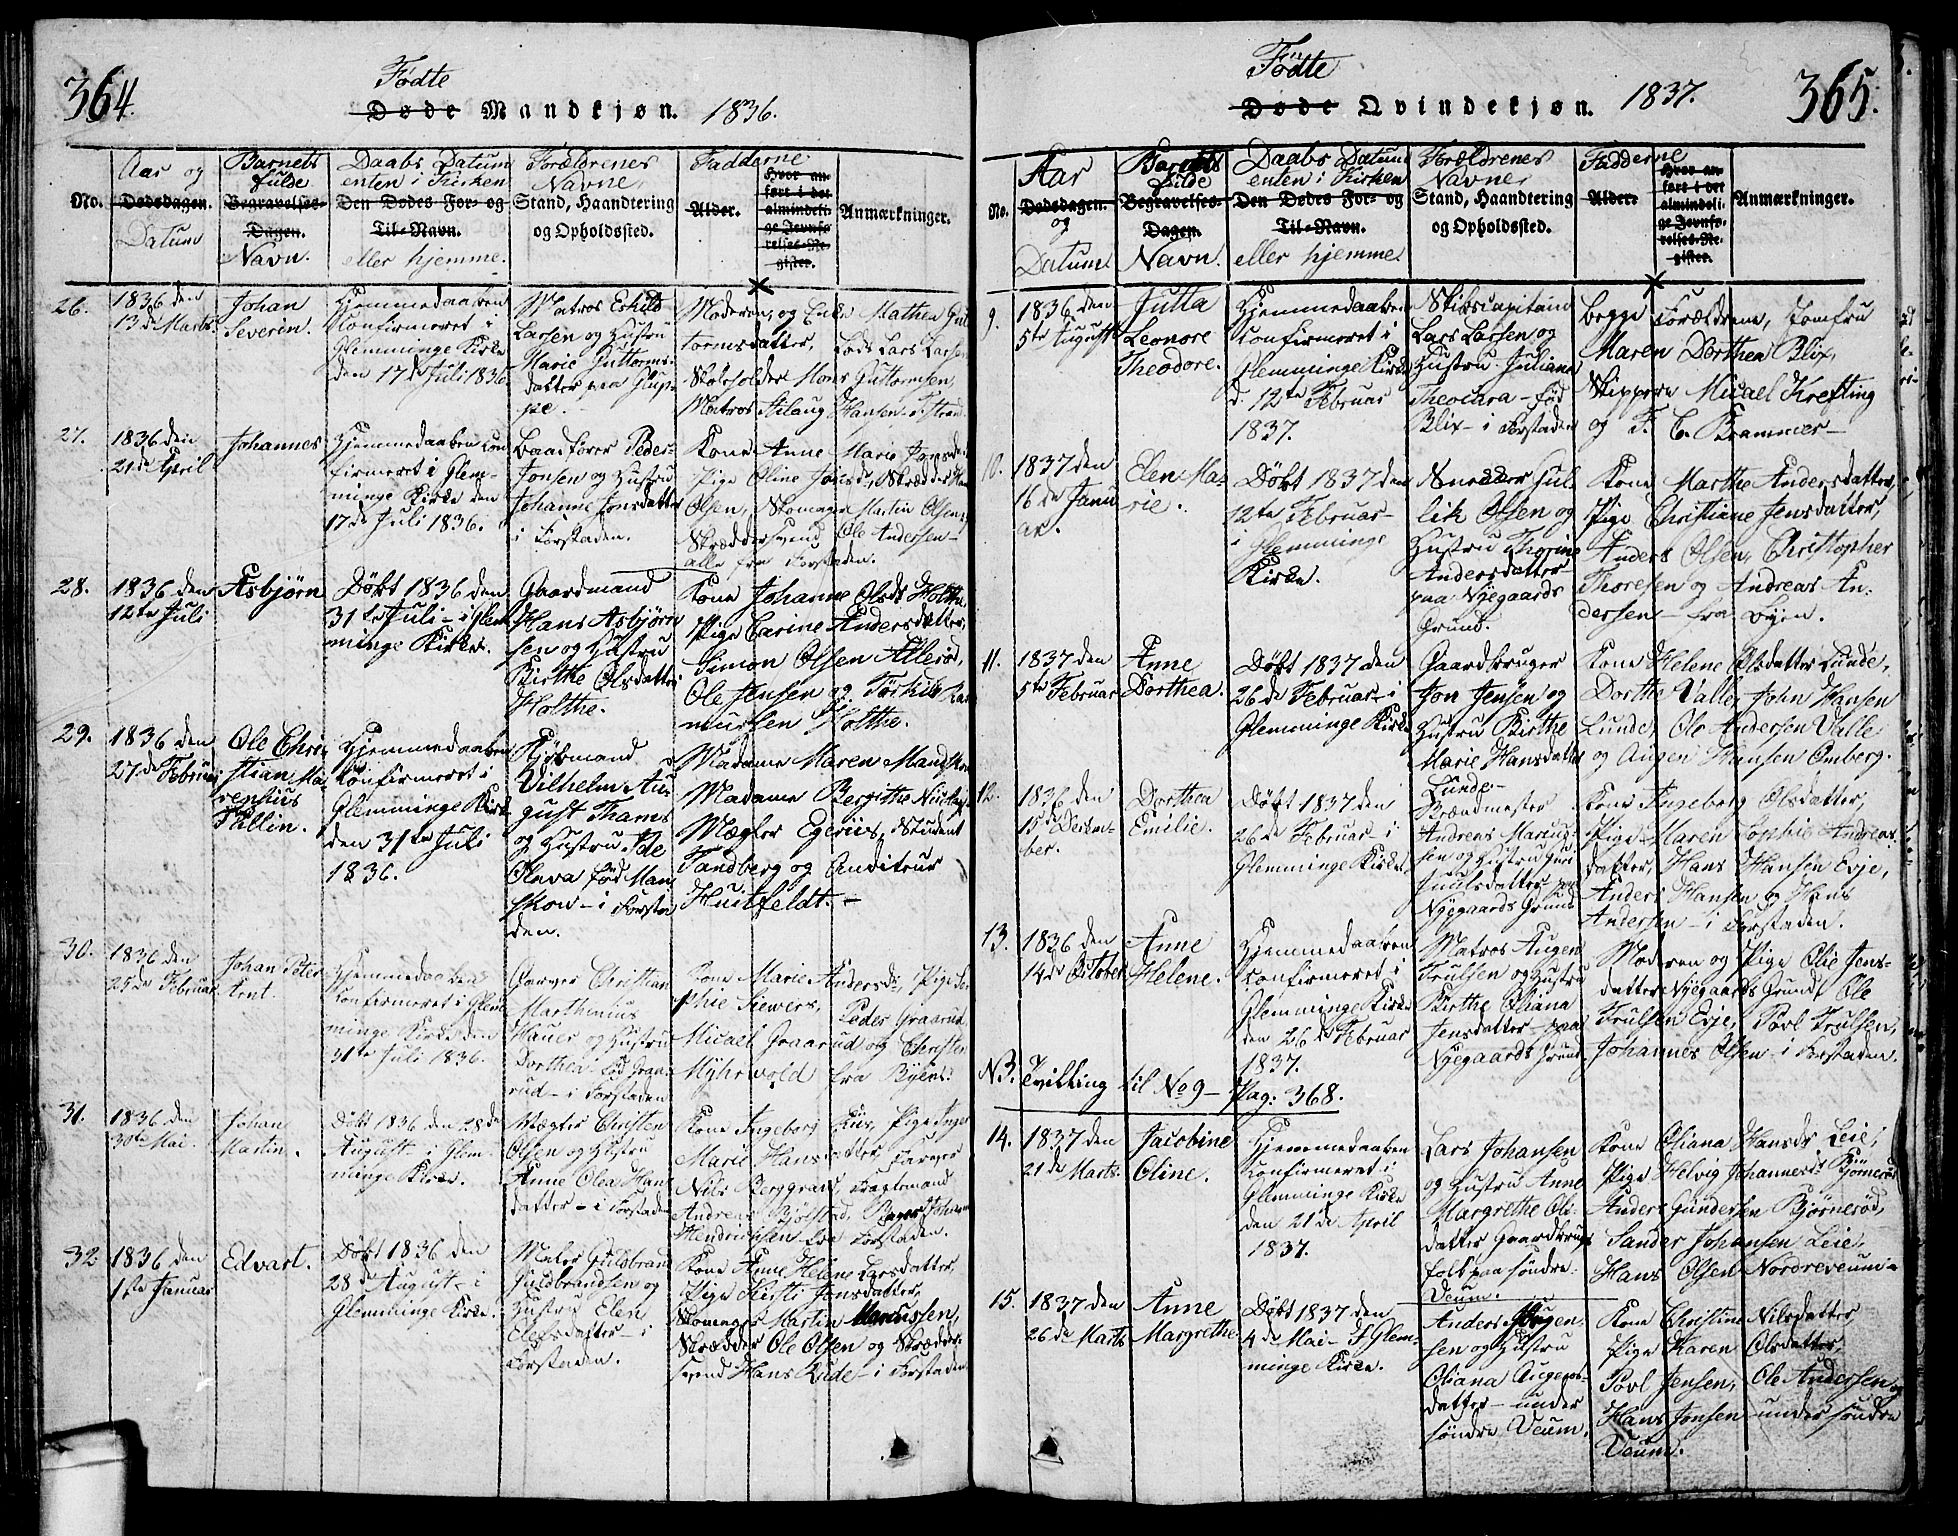 364.
Fødte
Døde Mandkjøn. 1836.
No.
Aar og
Dødsdagen.
Datum
Barnets
fulde
Begravelses-
Dagen.
Navn.
Daabs Datum
enten i Kirken
Den Dødes For- og
Til-Navn.
eller hjemme.
Forældrenes
Navne,
Stand, Haandtering
og Opholdssted.
Fadderne
Alder.
Hvor an-
ført i det
almindeli-
ge Jevnfø-
relses-Re-
gister.
Anmærkninger.
26.
1836 den
13de Marts.
Johan
Severin.
Hjemmedaaben
Confirmeret i
Glemminge Kirke
den 17de Juli 1836.
Matros Eskild
Larsen og Hustru
Marie Guttorms-
datter paa
Moderen, og Enke Mathea Gut
tormsdatter, Lods Lars Larsen
Mons Guttormsen,
Matros Aslaug Hansen
27.
1836 den
21de April
Johannes
Hjemmedaaben Con
firmeret i Glem-
minge Kirke den
17de Juli 1836.
Baadfører Peder
Jonsen og Hustru
Johanne Jonsdatter
i Forstaden.
Kone Anne Marie
Pige Oline Jonsd., Skrædder
Olsen, Skomager Martin Olsen
Skræddersvend Ole Andersen
alle fra Forstaden.
28.
1836 den
12te Juli
Asbjørn
Døbt 1836 den
31te Juli - i Glem
minge Kirke.
Gaardmand
Hans Asbjørn
sen og Hustru
Birthe Olsdatter
Holthe.
Kone Johanne Olsd: Holthe
Pige Carine Andersdatter,
Simon Olsen Allerød,
Ole Jensen og Torkild Ras
mussen Holthe.
29.
1836 den
27de Februar
Ole Chri
stian Ma
renius
Pallin.
Hjemmedaaben
Confirmeret i
Glemminge Kirke
den 31te Juli
1836.
Kjøbmand
Vilhelm Au
gust Thams
og Hustru
Olava fød Man
skow - i Forsta
den.
Madame Maren
Madame Bergithe
Mægler Egeriis, Student
Tandberg og Auditeur
Huitfeldt. -
30.
1836 den
25de Februar
Johan Peter
tent.
Hjemmedaaben
Confirmeret i Glem
minge Kirke den
31te Juli 1836.
Farver Christian
Marthinius
Hauer og Hustru
Dorthea fød Graa-
rud - i Forstaden
Kone Marie Andersd:, Pige So
phie Siewers, Peder Graarud
Micael Graarud og Christen
Myhrwold fra Byen.
31.
1836 den
30te Mai.
Johan
Martin.
Døbt 1836 den 28de
August - i Glem-
minge Kirke.
Mægler Christen
Olsen og Hustru
Anne Olea Han
datter - i Forstaden
Kone Ingeborg Lus, Pige Inger
Marie Hansdatter, Farver
Nils Berggrav, Fragtmand
Andreas Bjølstad, Bager Johannes
Hendrichsen fra Forstaden.
32
1836 den
1ste Januar
Edvart.
Døbt 1836 den
28de August - i
Glemminge Kirke.
Maler Guldbrand
Guldbrandsen og
Hustru Elen
Olefsdatter - i
Forstaden.
Kone Anne Helene Larsdatter,
Pige Kirsti Jonsdatter,
Skomager Martin Marcussen,
Skrædder Ole Olsen og Skrædder
svend Hans Rude - i Forstaden
365.
Fødte
Døde Qvindekjøn. 1837.
No.
Aar
Dødsdagen.
og
Datum
Barnets
fulde
Begravelses-
Dagen.
Navn.
Daabs Datum
enten i Kirken
Den Dødes For- og
Til-Navn.
eller hjemme
Forældrenes
Navne,
Stand, Haandtering
og Opholdssted.
Fadderne
Alder.
Hvor an-
ført i det
almindeli-
ge Jevnfø-
relses-Re-
gister.
Anmærkninger.
9.
1836 den
5te August
Jutta
Leonore
Theodore.
Hjemmedaaben
Confirmeret i
Glemminge Kirke
d. 12te Februar
1837.
Skibscapitain
Lars Larsen og
Hustru Juliana
Theodora - fød
Blix - i Forstaden
begge Forældrene, Jomfru
Maren Dorthea Blix,
Skippere Micael Krefting
og F. C. Brammer -
10.
1837 den
16de Janu
ar.
Elen Ma-
rie.
Døbt 1837 den
12te Februar -
i Glemminge
Kirke.
Snedker Gul
lik Olsen og
Hustru Thorine
Andersdatter
paa Nyegaards
Grund.
Kone Marthe Andersdatter,
Pige Christiane Jensdatter,
Anders Olsen, Christopher
Thoresen og Andreas An-
dersen - fra Byen.
11.
1837 den
5te Februar
Anne
Dorthea.
Døbt 1837 den
26de Februar - i
Glemminge Kirke
Gaardbruger
Jon Jensen og
Hustru Birthe
Marie Hansdatter
Lunde-
Kone Helene Olsdatter Lunde,
Dorthe Valle, John Hansen
Lunde, Ole Andersen Valle
og Augen Hansen Omberg.
12.
1836 den
15de Decem-
ber.
Dorthea
Emilie.
Døbt 1837 den
26de Februar - i
Glemminge Kirke.
Brændmester
Andreas Marcus-
sen og Hustru Guri
Juulsdatter - paa
Nyegaards Grund
Kone Ingeborg Olsdatter,
Pige Maren Sophie Andreas-
datter, Hans Hansen Evje,
Anders Hansen & Hans
Andersen - i Forstaden.
13.
1836 den
14de October
Anne
Helene.
Hjemmedaaben
Confirmeret i
Glemminge Kirke
den 26de Februar
1837.
Matros Augen
Trulsen og Hustru
Birthe Oliana
Jensdatter - paa
Nyegaards Grund
Moderen og Pige Olie Jens-
datter Nyegaards Grund, Ole
Trulsen Evje, Povl Trulsen,
Johannes Olsen - i Forstaden.
N.B. Tvilling til No 9 - Pag: 368.
14.
1837 den
21de Marts.
Jacobine
Oline.
Hjemmedaaben
Confirmeret i
Glemminge Kirke
den 21de April
1837.
Lars Johansen
og Hustru Anne
Margrethe Ols
datter Gaardbruger
folk paa søndre
Veum.
Kone Oliana Hansd: Leie,
Pige Helvig Johannesd: Bjørnerød
Anders Gundersen Bjørnerød,
Sander Johansen Leie,
Hans Olsen Nordreveum -
15.
1837 den
26de Marts
Anne
Margrethe
Døbt 1837 den
4de Mai - i Glem-
minge Kirke.
Anders Jørgen
sen og Hustru
Oliana Augens-
datter - under
søndre Veum.
Kone Christine Nilsdatter,
Pige Karen Olsdatter,
Povl Jensen, Ole Andersen og
Hans Jonsen - under søndre
Veum.